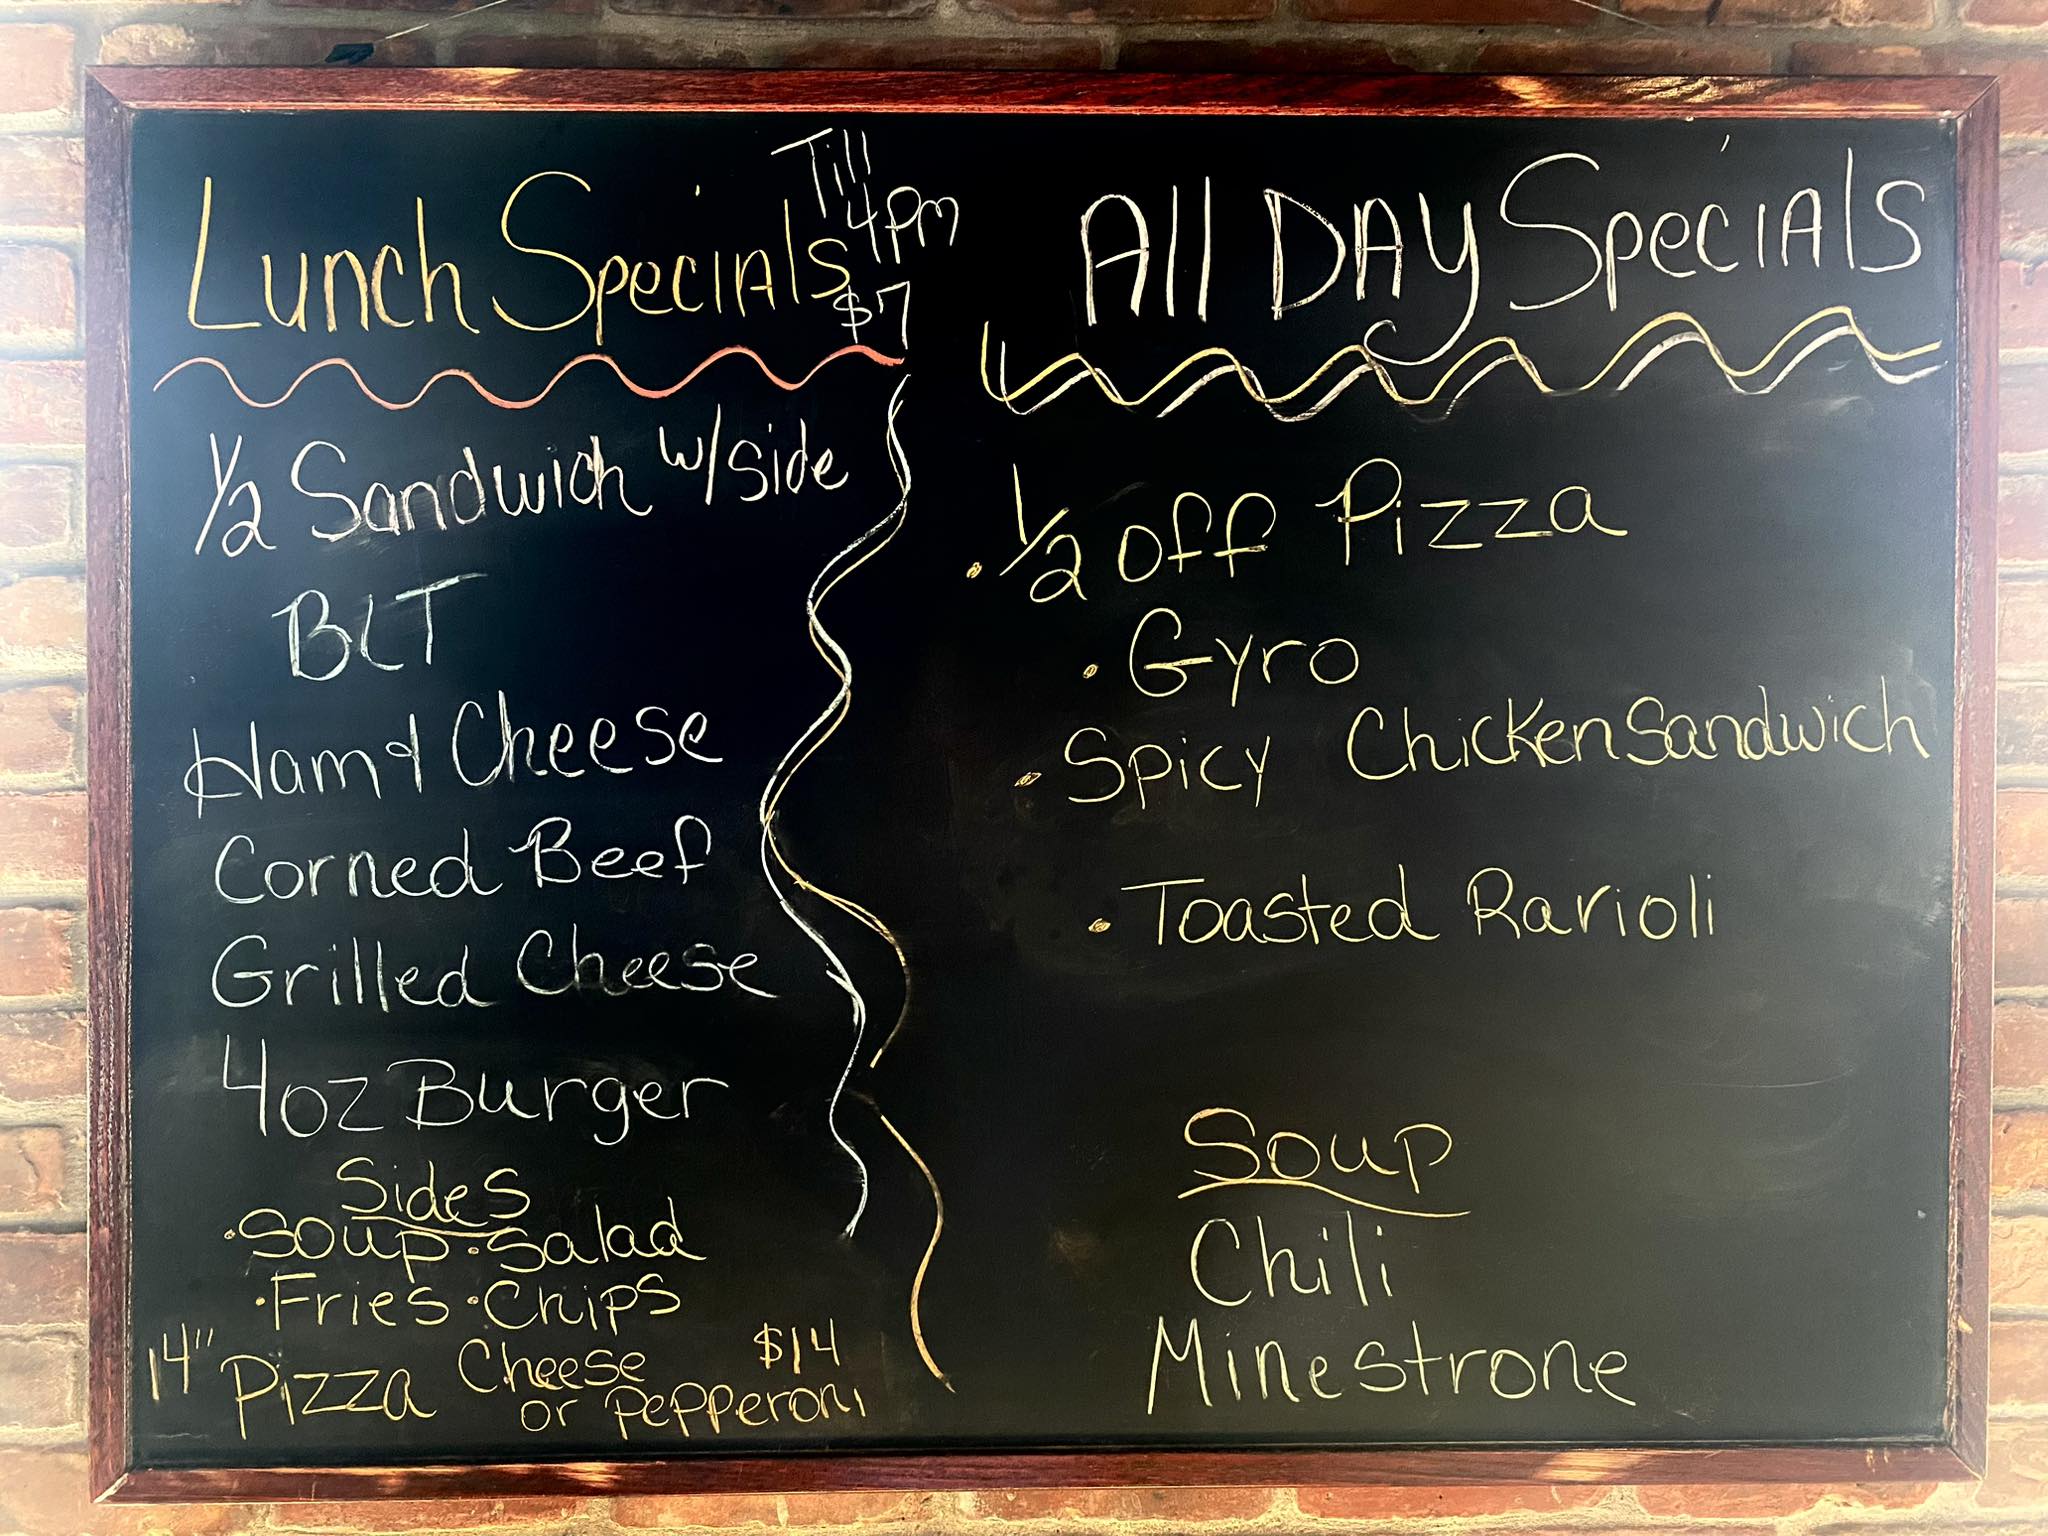 Lunch Specials Till 4pm $7
1/2 Sandwich w/side
BLT
Ham & Cheese
Corned Beef
Grilled Cheese
4oz Burger
Sides
• Soup • Salad
• Fries • Chips
14" Pizza Cheese or pepperoni $14
All DAy SpeciAls
• 1/2 off Pizza
• Gyro
• Spicy Chicken Sandwich
• Toasted Ravioli
Soup
Chili
Minestrone